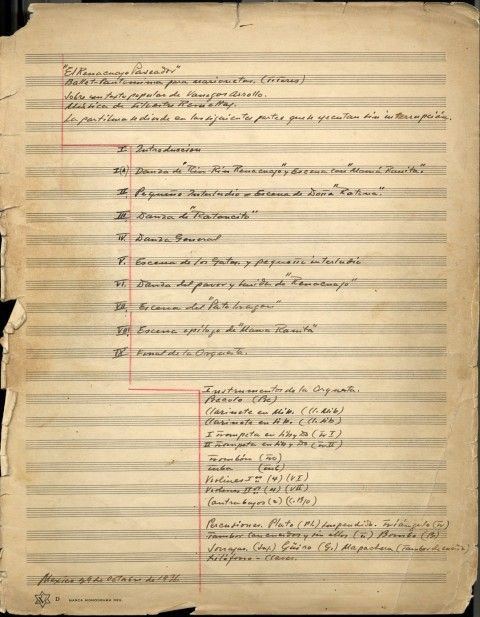 "El Renacuajo Paseador"
Ballet-Pantomima para marionetas. (títeres)
Sobre un texto popular de Vanegas Arroyo.
Música de Silvestre Revueltas.
La partitura se divide en las siguientes partes que se ejecutan sin interrupción.
I Introducción
I(a) Danza de "Rin Rin Renacuajo" y Escena con "Mamá Ranita".
II Pequeño Interludio o Escena de Doña "Ratona".
III Danza de "Ratoncito"
IV. Danza General
V. Escena de los Gatos, y pequeño interludio
VI. Danza del pavor y huída de "Renacuajo"
VII. Escena del "Pato tragón"
VIII Escena epílogo de "Mamá Ranita"
IX Final de la Orquesta.
Instrumentos de la Orquesta.
Piccolo (Pic)
Clarinete en Mib. (Cl. Mib)
Clarinete en Sib. (Cl. Sib)
I Trompeta en Sib y Do (Tr I)
II Trompeta en Sib y Do (Tr II)
Trombón
Tuba
Violines Ios (4) (VI)
Violines IIos (4) (VII)
Contrabajos (2)
Percusiones. Plato (Pl.) suspendido. Triángulo
Tambor con cuerdas y sin ellas Bombo (B)
Sonajas. Güiro (G.)
Xilófono - Claves.
Mexico Octubre de
D MARCA MONOGRAMA REG.